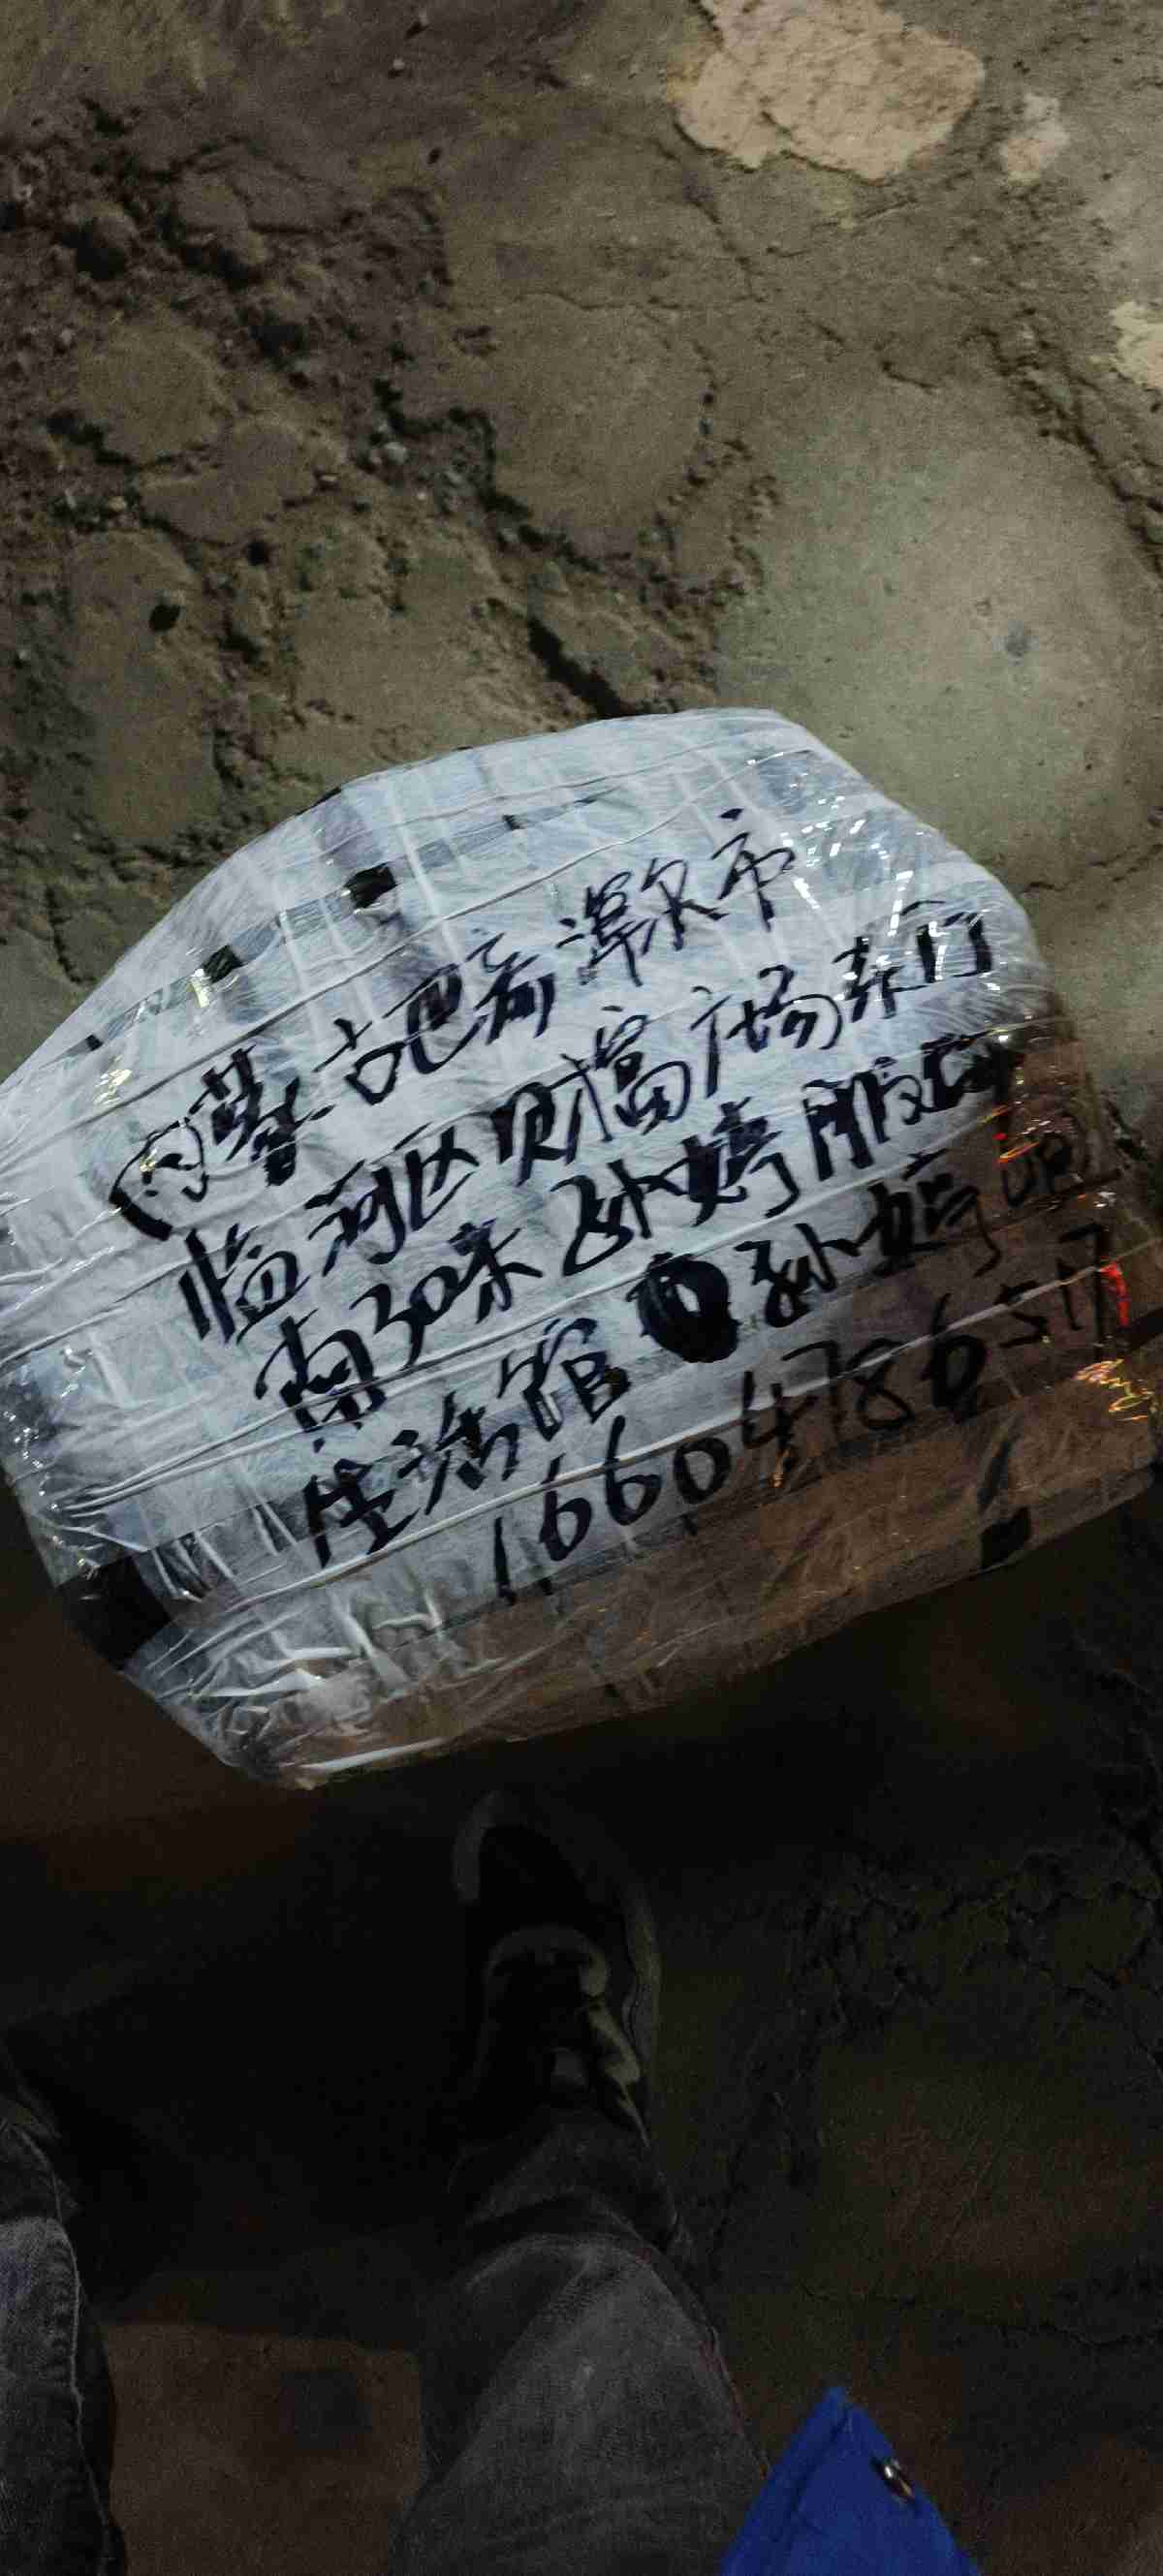 内蒙古巴彦淖尔市
临河区财富广场东门
南30米孙婷服饰
生活馆 孙婷 收
16604786517